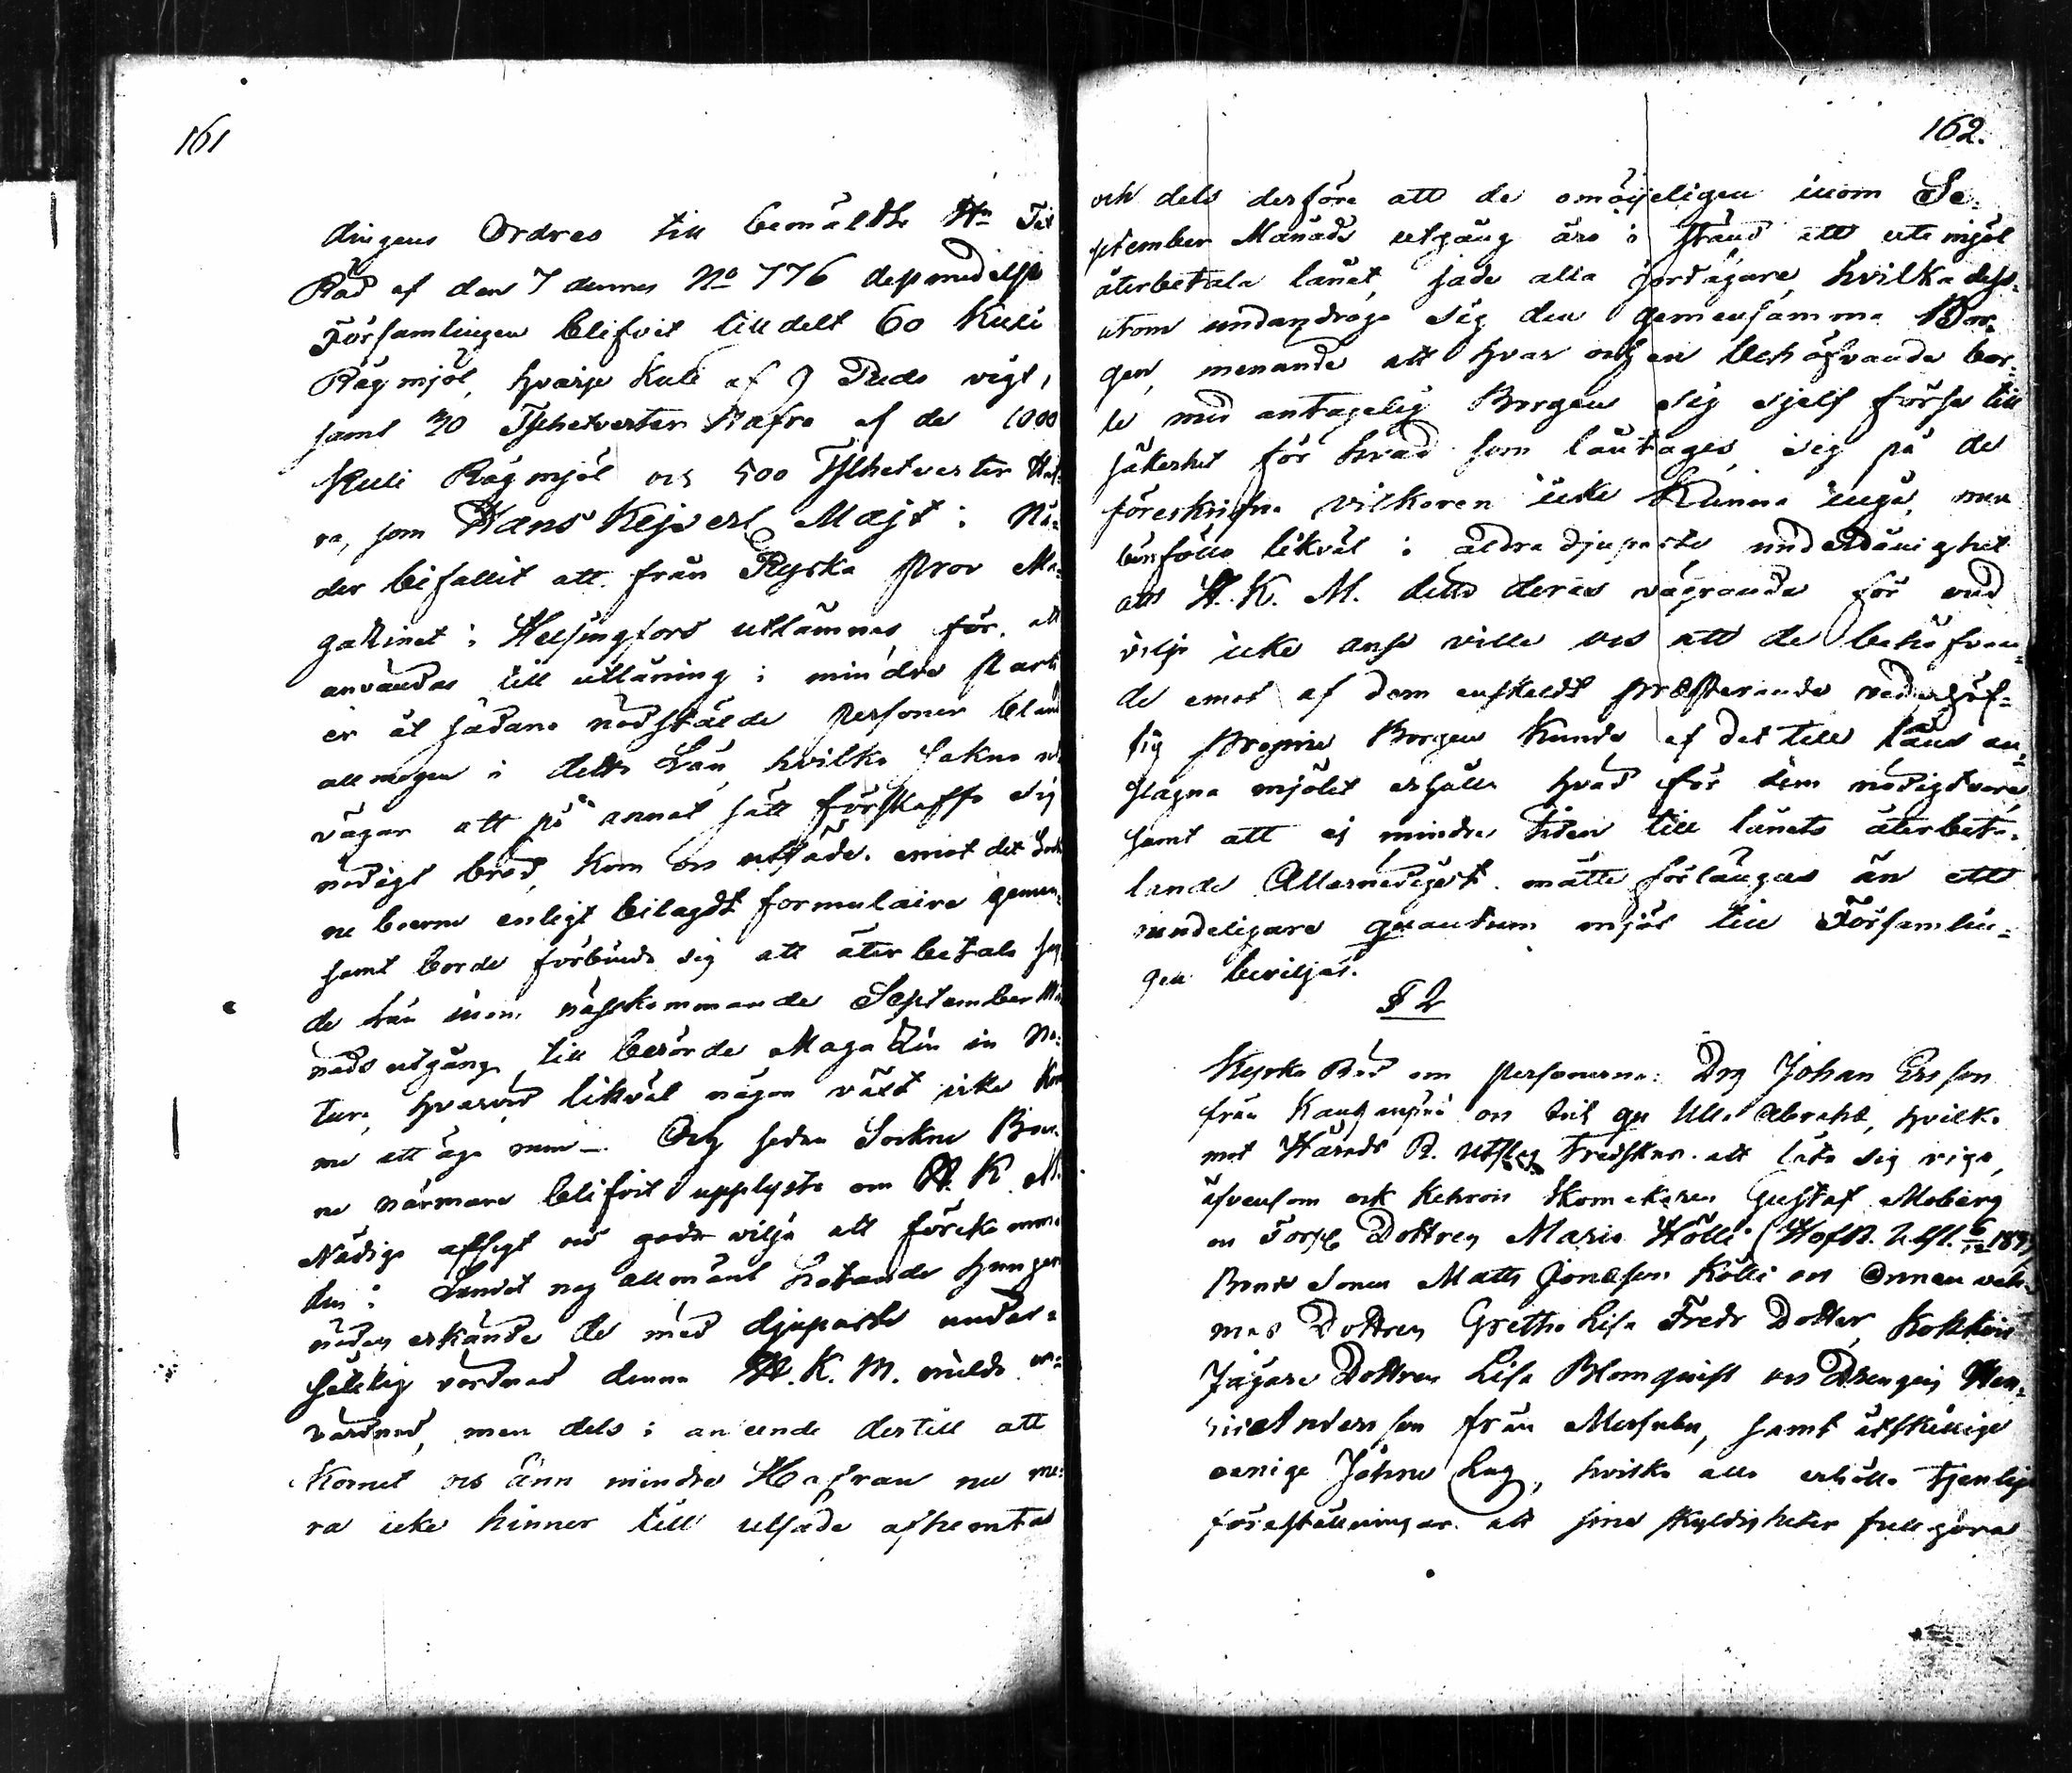 161
dingens Ordres till bemäldte Hr Tit
Råd af den 7 dennes No 776 dess medelst
Församlingen blifvit tilldelt 60 Kuli
Rågmjöl, hvarje Kuli af 9 Puds vigt,
samt 30 Tschetverter Hafra af de 1000
Kuli Rågmjöl och 500 Tschetverter Haf-
ra, som Hans Kejserl Majt i Nå-
der befallit att från Ryska Prov Ma-
gazinet i Helsingfors utlämnas för att
användas till utlåning i mindre Parti
er åt sådana nödstälde Personer bland
allmogen i detta Län, hvilka sakna ut
vägar att på annat sätt förskaffa sig
nödigt bröd, Korn och utsäde. emot det Sock
ne boerne enligt bilagdt formulaire gemen-
samt borde förbinda sig att återbetala
de Lån inom nästkommande September Må
nads utgång till berörde Magazin in Na-
tura, hvarvid likväl någon växt icke Kom
me att äga rum. Och sedan Sockne Bo
ne närmare blifvit upplyste om H. K. M.
Nådiga afsigt och goda vilja att förekomma
den i Landet nog allmänt hotande hungers
nöden erkände de med djupaste under-
såtelig vördnad denna H. K. M. milda
vårdnad, men dels i anseende dertill att
Kornet och änn mindre Hafran nu me-
ra icke hinner till utsäde afhemtas
162.
och dels derföre att de omöjeligen inom Se-
ptember Månads utgång äro i stånd att ut mjöl
återbetala lånet, sade alla jordägare, hvilka dess-
utom undandrogo sig den gemensamma Bor-
gen, menande att hvar och en behöfvande bor-
de med antagelig Borgen sig sjelf förse till
säkerhet för hvad som låntages, sig på de
föreskrifna vilkoren icke Kunna ingå, men
bönföllo likväl i aldra djupaste underdånighet
att H. K. M. detta deras vägrande för ond
vilje icke anse ville och att de behöfvan-
de emot af dem enskeldt præsterande vederhäf-
tig Borgen Kunde af det till Låns an-
slagna mjölet erhålla hvad för dem nödigt vore,
samt att ej mindre tiden till lånets återbeta-
lande Allernådigst måtte förlängas än ett
ymndeligare quantum mjöl till Församlin-
gen beviljas.
§ 2
Kyrko Råd om Personerne: Drg Johan Ersson
från och Ulla Abrahd, hvilka
mot Härads R. Utslag Tredskas att låta sig viga,
äfvensom ock Skomakaren Gustaf Moberg
och Torp Dottren Maria Hölli (HofR. Utsl. 6/12
Bonde Sonen Matts Jonasson Kölli och
mas Dottren Gretha Lisa Fredr Dotter,
Jägare Dottren Lisa Blomquist och Drengen Hen-
ric Andersson från, samt åtskillige
oenige Folk, hvilka alla erhöllo tjenlige
föreställningar att sine skyldigheter fullgöra